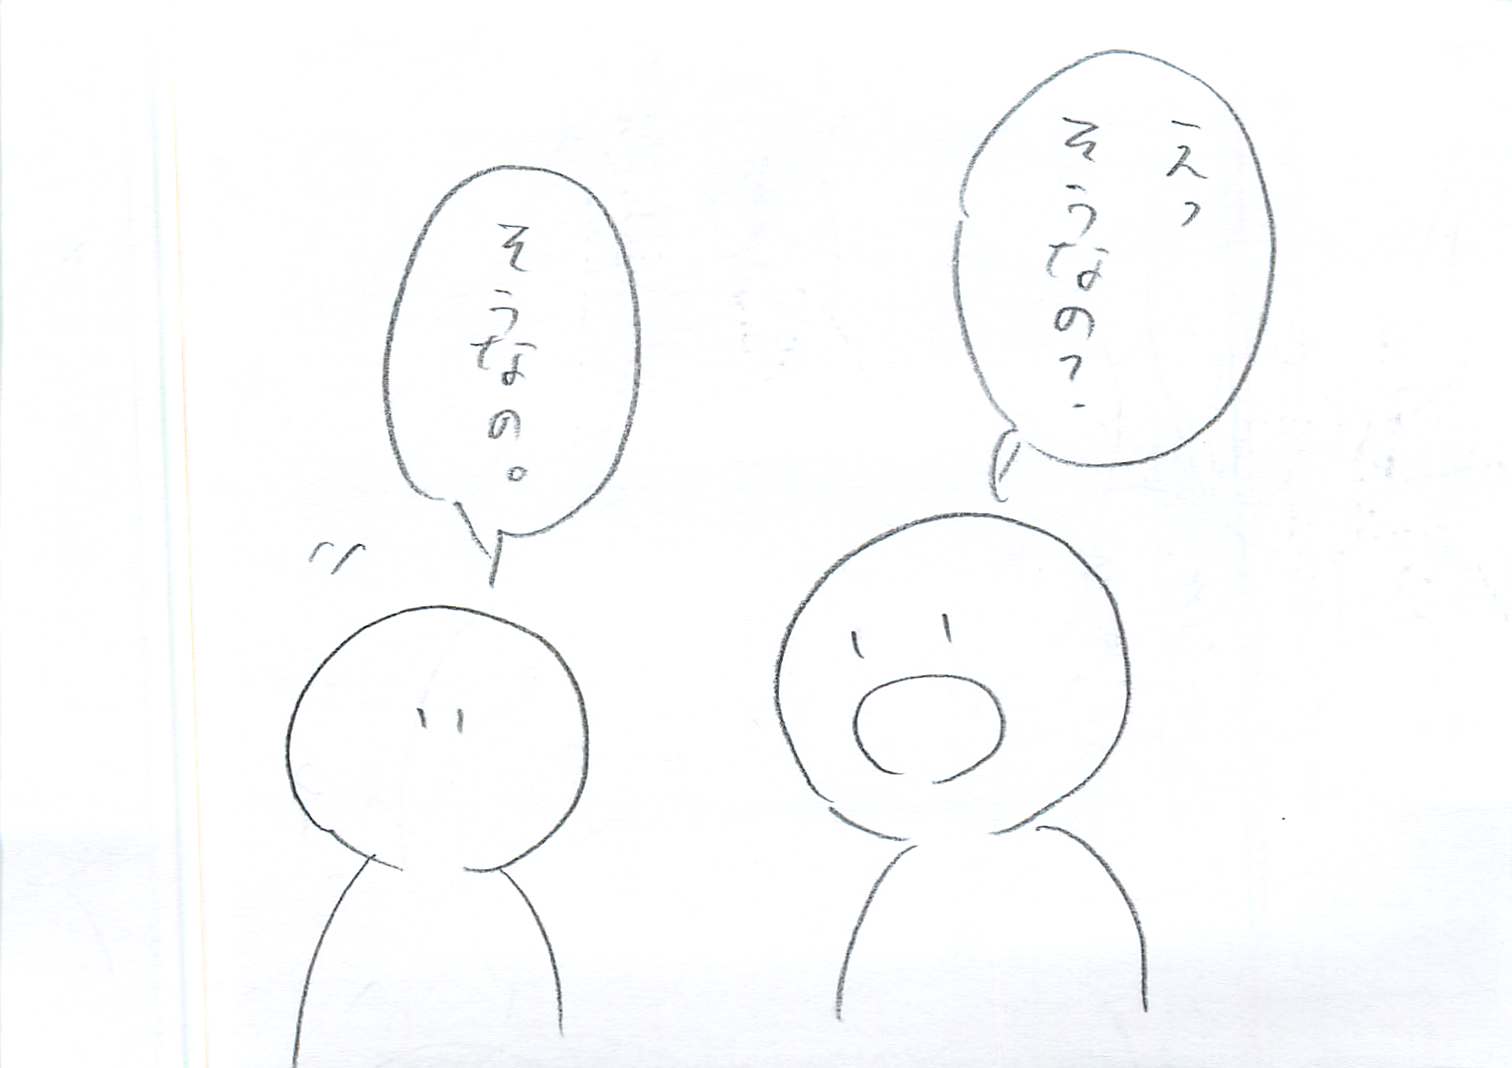 えっ
そうなの?
そうなの。